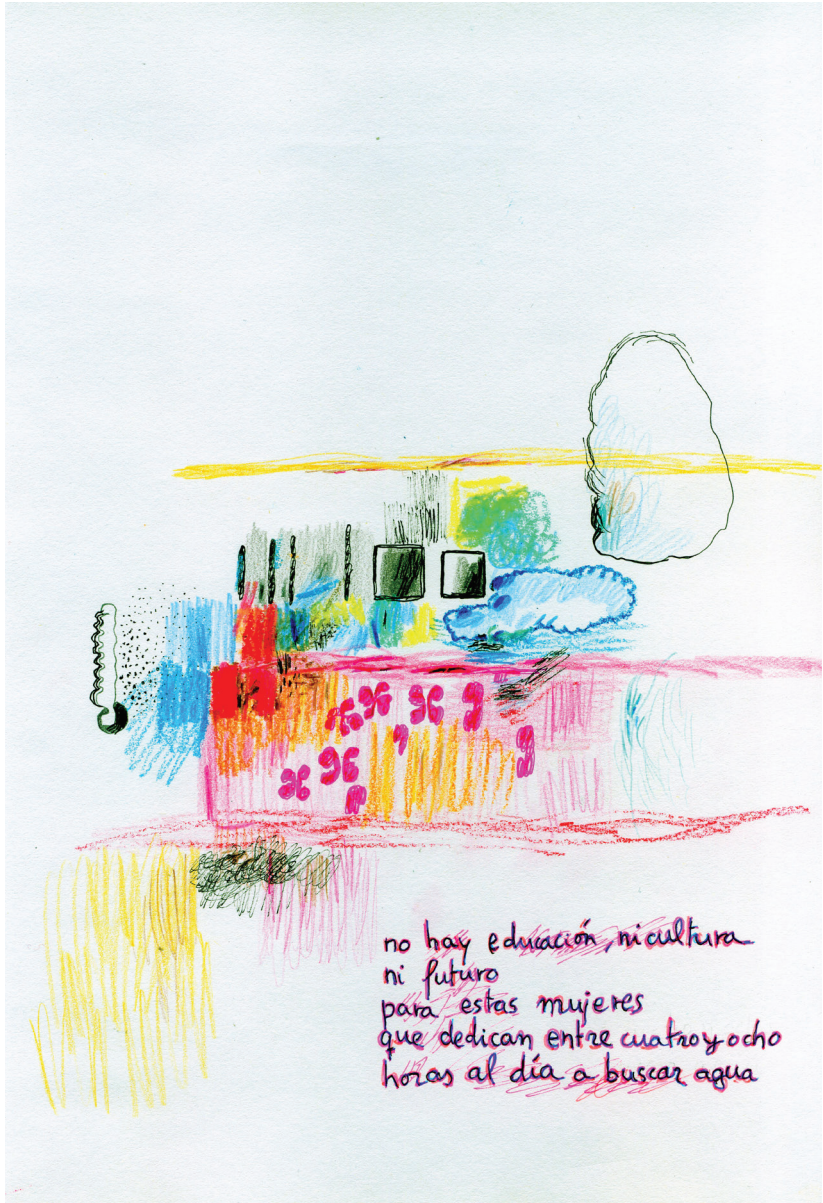 no hay educación, ni cultura
ni futuro
para estas mujeres
que dedican entre cuatro y ocho
horas al día a buscar agua